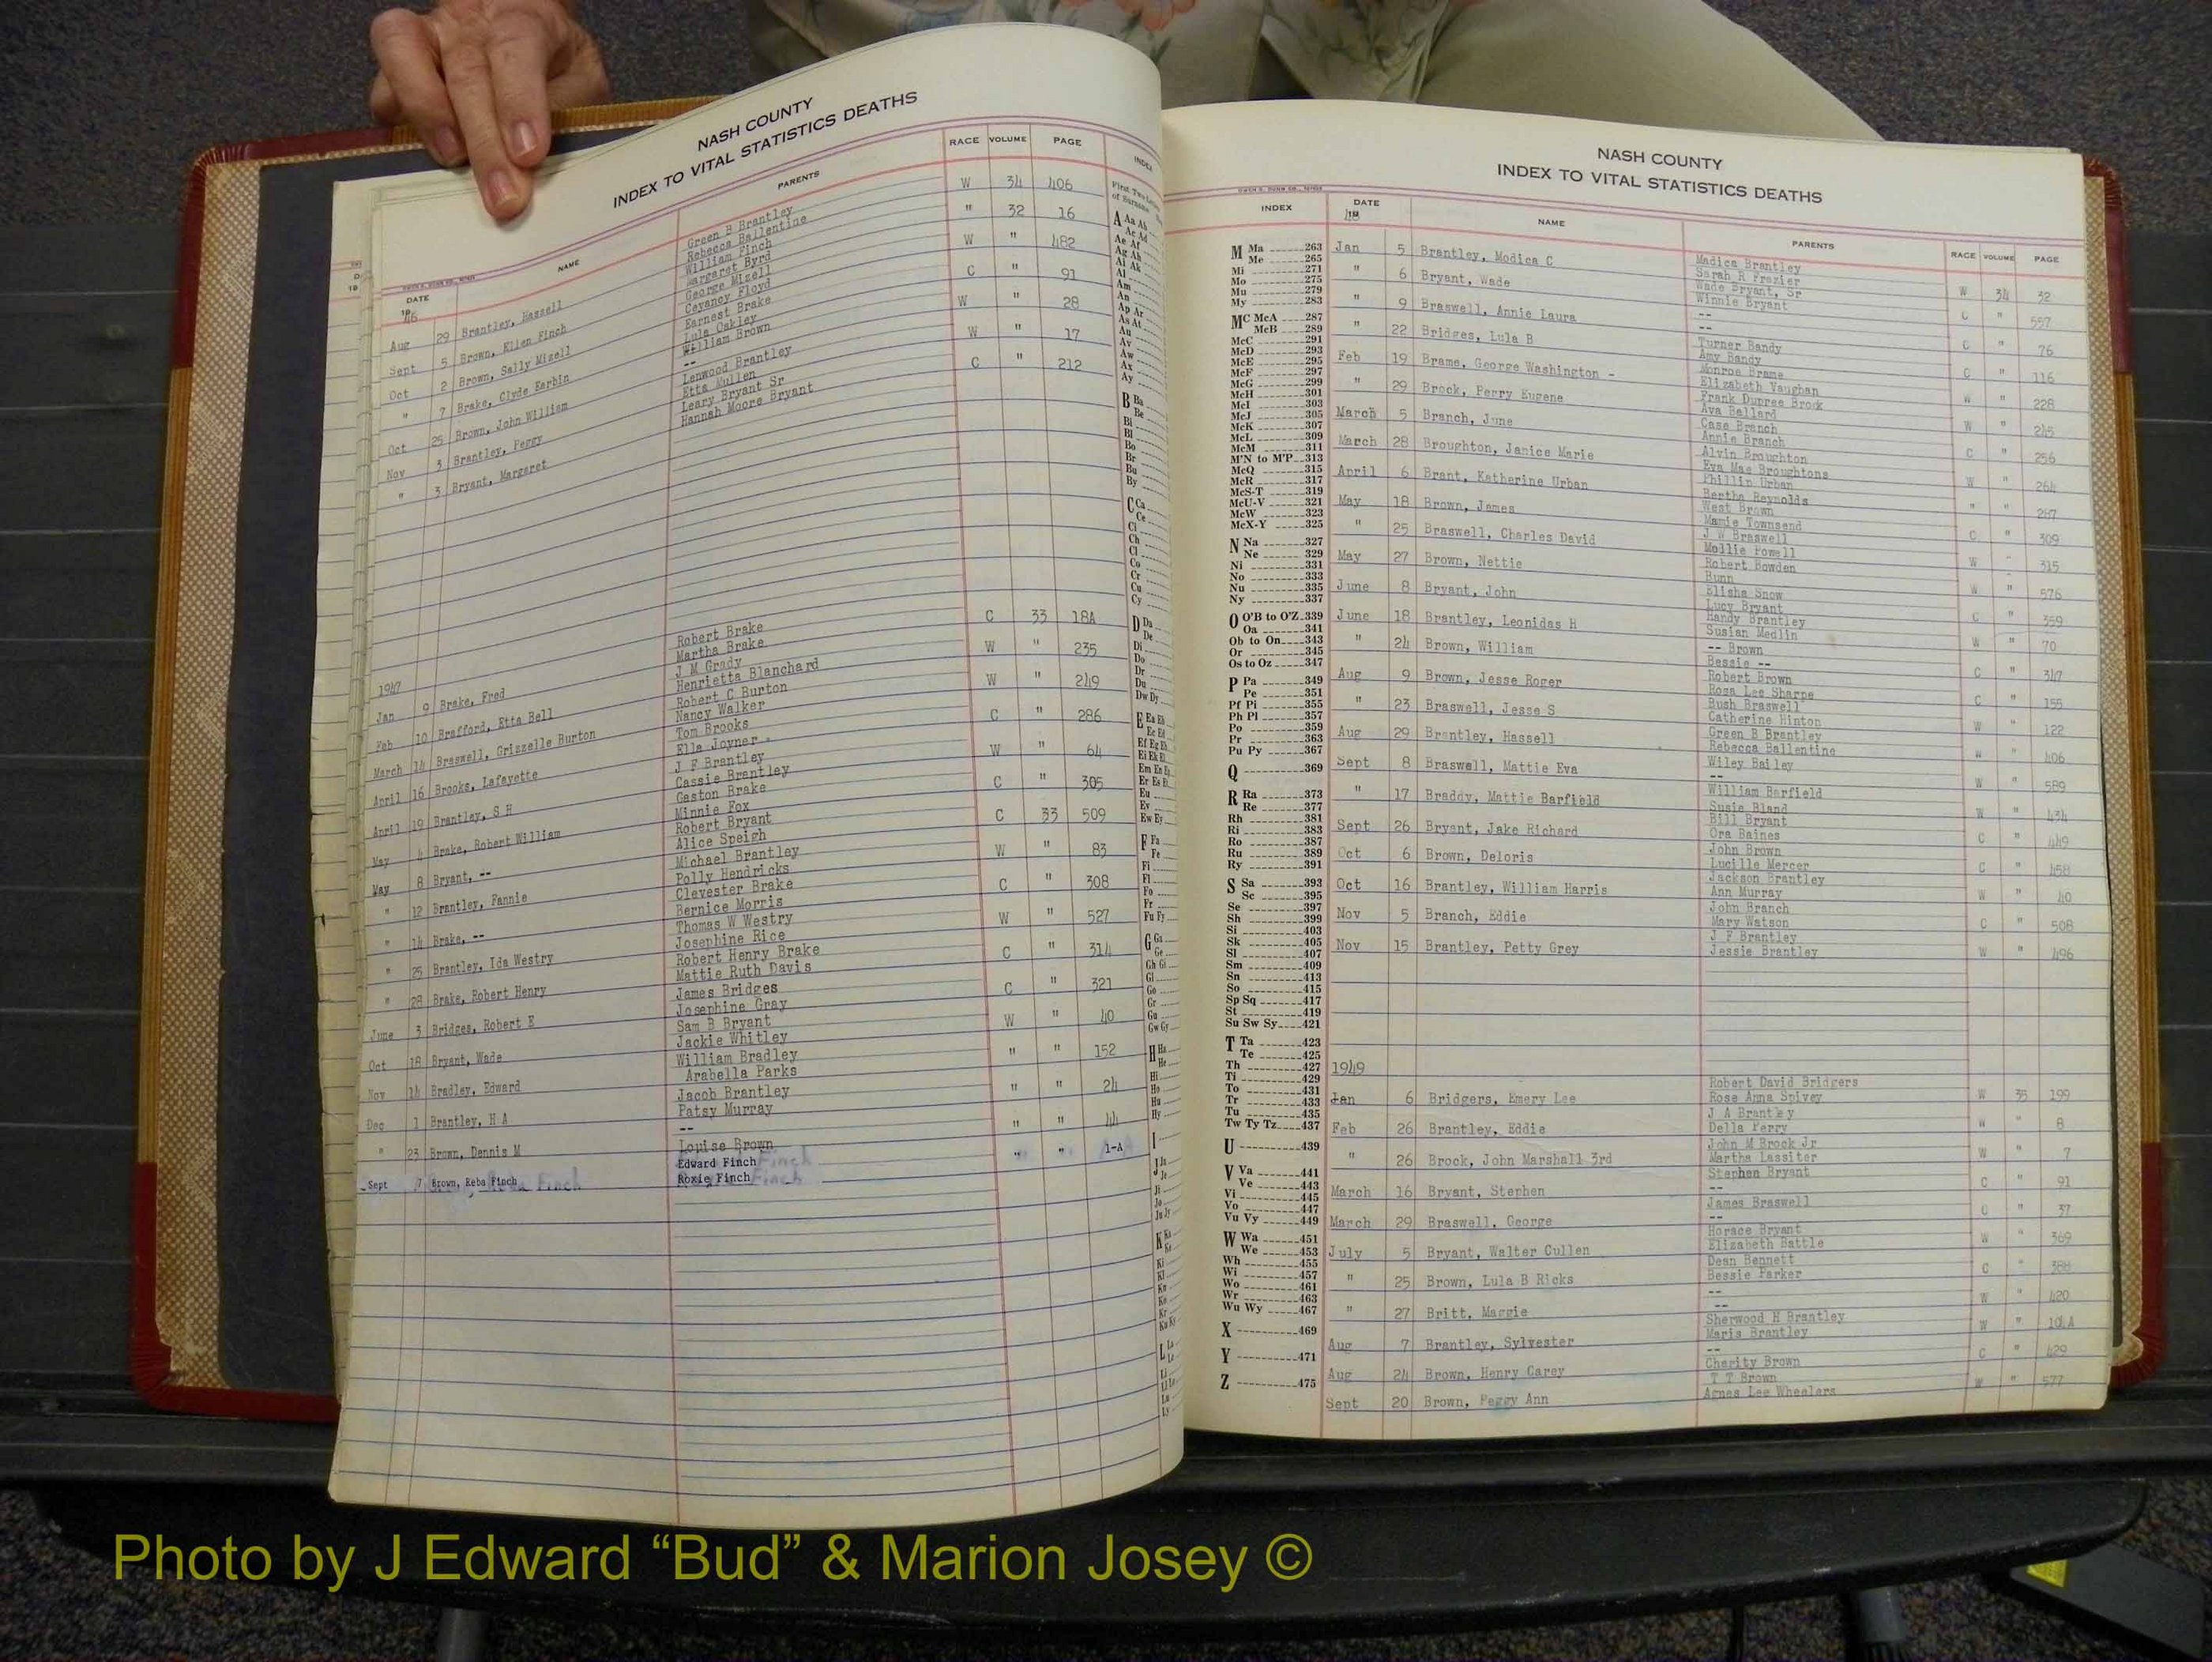 NASH COUNTY
INDEX TO VITAL STATISTICS DEATHS
DATE NAME PARENTS RACE VOLUME PAGE
1946
Green B Brantley
Aug 29 Brantley, Hassell Rebecca Ballentine W 34 406
William Finch
Sept 5 Brown, Ellen Finch Margaret Byrd " 32 16
George Mizell
Oct 2 Brown, Sally Mizell Cevancy Floyd W " 482
Earnest Brake
" 7 Brake, Clyde Earbin Lula Oakley C " 91
William Brown
Oct 25 Brown, John William -- W " 28
Lenwood Brantley
Nov 3 Brantley, Peggy Etta Mullen W " 17
Leary Bryant Sr
" 3 Bryant, Margaret Hannah Moore Bryant C " 212
1947
Robert Brake
Jan 9 Brake, Fred Martha Brake C 33 18A
J M Grady
Feb 10 Brafford, Etta Bell Henrietta Blanchard W " 235
Robert C Burton
March 14 Braswell, Griszelle Burton Nancy Walker W " 249
Tom Brooks
April 16 Brooks, Lafayette Ella Joyner C " 286
J F Brantley
April 19 Brantley, S H Cassie Brantley W " 64
Gaston Brake
May 4 Brake, Robert William Minnie Fox C " 305
Robert Bryant
May 8 Bryant, -- Alice Speigh C 33 509
Michael Brantley
" 12 Brantley, Fannie Polly Hendricks W " 83
Clevester Brake
" 14 Brake, -- Bernice Morris C " 308
Thomas W Westry
" 25 Brantley, Ida Westry Josephine Rice W " 527
Robert Henry Brake
" 28 Brake, Robert Henry Mattie Ruth Davis C " 314
James Bridges
June 3 Bridges, Robert E Josephine Gray C " 321
Sam B Bryant
Oct 18 Bryant, Wade Jackie Whitley W " 40
William Bradley
Nov 14 Bradley, Edward Arabella Parks " " 152
Jacob Brantley
Dec 1 Brantley, H A Patsy Murray " " 24
--
" 23 Brown, Dennis M Louise Brown " " 44
Edward Finch
Sept 7 Brown, Reba Finch Roxie Finch " " 1-A
INDEX
First Two Letters of Surname
A Aa Ab
Ac Ad
Ae Af
Ag Ah
Ai Ak
Al
Am
An
Ap Ar
As At
Au
Av
Aw
Ax
Ay
B Ba
Be
Bi
Bl
Bo
Br
Bu
By
C Ca
Ce
Ci
Ch
Cl
Co
Cr
Cu
Cy
D Da
De
Di
Do
Dr
Du
Dw Dy
NASH COUNTY
INDEX TO VITAL STATISTICS DEATHS
INDEX DATE NAME PARENTS RACE VOLUME PAGE
48
M Ma 263
Me 265
Mi 271
Mo 275
Mu 279
My 283
MC McA 287
McB 289
McC 291
McD 293
McE 295
McF 297
McG 299
McH 301
McI 303
McJ 305
McK 307
McL 309
McM 311
M'N to M'P 313
McQ 315
McR 317
McS-T 319
McU-V 321
McW 323
McX-Y 325
N Na 327
Ne 329
Ni 331
No 333
Nu 335
Ny 337
O O'B to O'Z 339
Oa 341
Ob to On 343
Or 345
Os to Oz 347
P Pa 349
Pe 351
Pf Pi 355
Ph Pl 357
Po 359
Pr 363
Pu Py 367
Q 369
R Ra 373
Re 377
Rh 381
Ri 383
Ro 387
Ru 389
Ry 391
S Sa 393
Sc 395
Se 397
Sh 399
Si 403
Sk 405
Sl 407
Sm 409
Sn 413
So 415
Sp Sq 417
St 419
Su Sw Sy 421
T Ta 423
Te 425
Th 427
Ti 429
To 431
Tr 433
Tu 435
Tw Ty Tz 437
U 439
V Va 441
Ve 443
Vi 445
Vo 447
Vu Vy 449
W Wa 451
We 453
Wh 455
Wi 457
Wo 461
Wr 463
Wu Wy 467
X 469
Y 471
Z 475
Madica Brantley
Jan 5 Brantley, Modica C Sarah R Frazier W 34 32
Wade Bryant, Sr
" 6 Bryant, Wade Winnie Bryant C " 557
--
" 9 Braswell, Annie Laura -- C " 76
Turner Bandy
" 22 Bridges, Lula B Amy Bandy C " 116
Monroe Brame
Feb 19 Brame, George Washington - Elizabeth Vaughan W " 228
Frank Dupree Brock
" 29 Brock, Perry Eugene Ava Ballard W " 245
Case Branch
March 5 Branch, June Annie Branch C " 256
Alvin Broughton
March 28 Broughton, Janice Marie Eva Mae Broughtons W " 264
Phillip Urban
April 6 Brant, Katherine Urban Bertha Reynolds " " 287
West Brown
May 18 Brown, James Mamie Townsend C " 309
J W Braswell
" 25 Braswell, Charles David Mollie Powell W " 315
Robert Bowden
May 27 Brown, Nettie Bunn W " 576
Elisha Snow
June 8 Bryant, John Lucy Bryant C " 359
Handy Brantley
June 18 Brantley, Leonidas H Susian Medlin W " 70
-- Brown
" 24 Brown, William Bessie -- C " 347
Robert Brown
Aug 9 Brown, Jesse Roger Rosa Lee Sharpe C " 155
Bush Braswell
" 23 Braswell, Jesse S Catherine Hinton W " 122
Green B Brantley
Aug 29 Brantley, Hassell Rebecca Ballentine W " 406
Wiley Bailey
Sept 8 Braswell, Mattie Eva -- W " 589
William Barfield
" 17 Braddy, Mattie Barfield Susie Bland W " 434
Bill Bryant
Sept 26 Bryant, Jake Richard Ora Baines C " 449
John Brown
Oct 6 Brown, Deloris Lucille Mercer C " 458
Jackson Brantley
Oct 16 Brantley, William Harris Ann Murray W " 40
John Branch
Nov 5 Branch, Eddie Mary Watson C " 508
J F Brantley
Nov 15 Brantley, Petty Grey Jessie Brantley W " 496
1949
Robert David Bridgers
Jan 6 Bridgers, Emery Lee Rose Anna Spivey W 35 199
J A Brantley
Feb 26 Brantley, Eddie Della Perry W " 8
John M Brock Jr
" 26 Brock, John Marshall 3rd Martha Lassiter W " 7
Stephen Bryant
March 16 Bryant, Stephen -- C " 91
James Braswell
March 29 Braswell, George -- C " 37
Horace Bryant
July 5 Bryant, Walter Cullen Elizabeth Battle W " 369
Dean Bennett
" 25 Brown, Lula B Ricks Bessie Parker C " 388
--
" 27 Britt, Maggie -- W " 420
Sherwood H Brantley
Aug 7 Brantley, Sylvester Maris Brantley W " 10LA
--
Aug 24 Brown, Henry Carey Charity Brown C " 429
T T Brown
Sept 20 Brown, Peggy Ann Agnes Lee Wheelers W " 577
Photo by J Edward “Bud” & Marion Josey ©